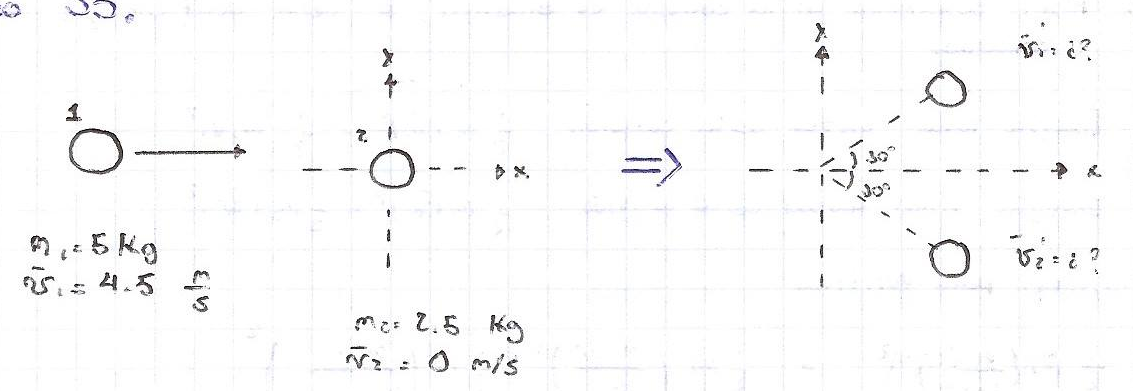 35.
1
m₁ = 5 Kg
v̄₁ = 4.5 m/s
y
2
x
m₂ = 2.5 Kg
v̄₂ = 0 m/s
⇒
y
v̄₁' = ¿?
30°
30°
x
v̄₂' = ¿?